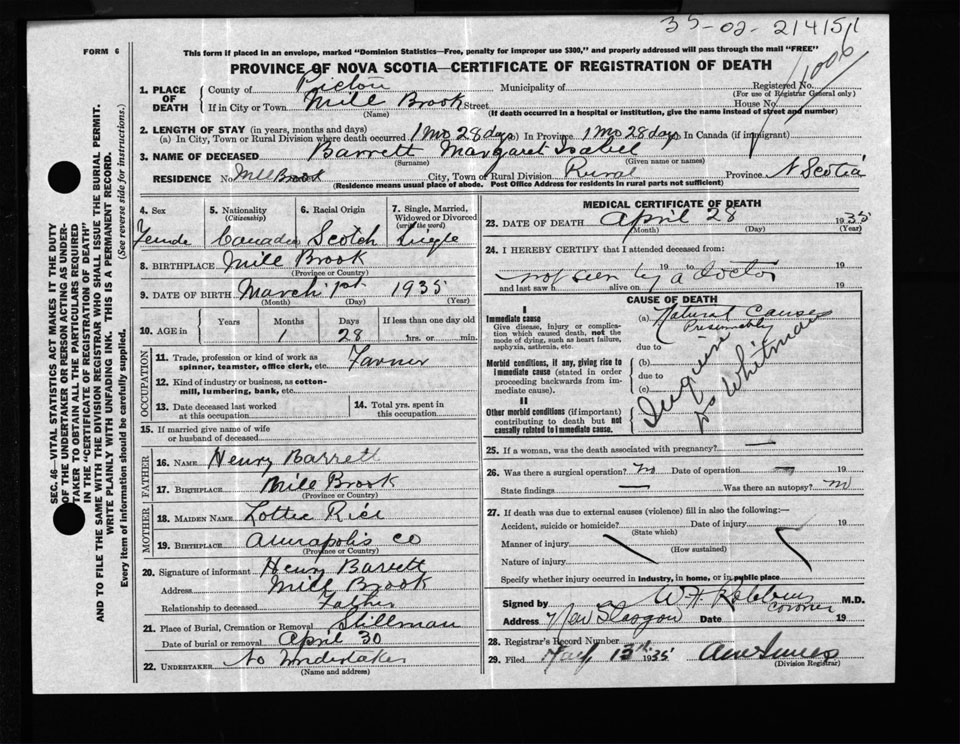 35-02-214151
FORM 6
This form if placed in an envelope, marked "Dominion Statistics—Free, penalty for improper use $300," and properly addressed will pass through the mail "FREE"
PROVINCE OF NOVA SCOTIA—CERTIFICATE OF REGISTRATION OF DEATH
1006
1. PLACE OF DEATH
County of Pictou Municipality of Registered No.
(For use of Registrar General only)
If in City or Town Mill Brook Street House No.
(Name) (If death occurred in a hospital or institution, give the name instead of street and number)
2. LENGTH OF STAY (in years, months and days)
(a) In City, Town or Rural Division where death occurred 1 Mo 28 days In Province 1 Mo 28 days In Canada (if immigrant)
3. NAME OF DECEASED Barrett Margaret Isabel
(Surname) (Given name or names)
RESIDENCE No. Mill Brook City, Town or Rural Division Rural Province N Scotia
(Residence means usual place of abode. Post Office Address for residents in rural parts not sufficient)
4. Sex
5. Nationality (Citizenship)
6. Racial Origin
7. Single, Married, Widowed or Divorced (write the word)
Scotch Single
8. BIRTHPLACE Mill Brook
(Province or Country)
9. DATE OF BIRTH March 1st 1935
(Month) (Day) (Year)
10. AGE in Years Months Days If less than one day old
1 28 hrs. or min.
OCCUPATION
11. Trade, profession or kind of work as spinner, teamster, office clerk, etc. Farmer
12. Kind of industry or business, as cotton-mill, lumbering, bank, etc.
13. Date deceased last worked at this occupation
14. Total yrs. spent in this occupation
15. If married give name of wife or husband of deceased
FATHER
16. NAME Henry Barrett
17. BIRTHPLACE Mill Brook
(Province or Country)
MOTHER
18. MAIDEN NAME Lottie Rice
19. BIRTHPLACE Annapolis Co
(Province or Country)
20. Signature of informant Henry Barrett
Address Mill Brook
Relationship to deceased Father
21. Place of Burial, Cremation or Removal Stillman
Date of burial or removal April 30
22. UNDERTAKER No Undertaker
(Name and address)
MEDICAL CERTIFICATE OF DEATH
23. DATE OF DEATH April 28 1935
(Month) (Day) (Year)
24. I HEREBY CERTIFY that I attended deceased from:
19 to 19
not seen by a doctor
and last saw h alive on 19
CAUSE OF DEATH
I
Immediate cause (a) Natural Causes
Give disease, injury or complication which caused death, not the mode of dying, such as heart failure, asphyxia, asthenia, etc.
Presumably
due to
Morbid conditions, if any, giving rise to immediate cause (stated in order proceeding backwards from immediate cause).
(b)
due to
(c)
II
Other morbid conditions (if important) contributing to death but not causally related to immediate cause.
25. If a woman, was the death associated with pregnancy? —
26. Was there a surgical operation? no Date of operation — 19
State findings — Was there an autopsy? no
27. If death was due to external causes (violence) fill in also the following:—
Accident, suicide or homicide? Date of injury 19
(State which)
Manner of injury
(How sustained)
Nature of injury
Specify whether injury occurred in industry, in home, or in public place
Signed by W. H. M.D.
coroner
Address New Glasgow Date 19
28. Registrar's Record Number
29. Filed May 13th 1935
(Division Registrar)
SEC. 46—VITAL STATISTICS ACT MAKES IT THE DUTY
OF THE UNDERTAKER OR PERSON ACTING AS UNDER-
TAKER TO OBTAIN ALL THE PARTICULARS REQUIRED
IN THE "CERTIFICATE OF REGISTRATION OF DEATH"
AND TO FILE THE SAME WITH THE DIVISION REGISTRAR WHO SHALL ISSUE THE BURIAL PERMIT.
WRITE PLAINLY WITH UNFADING INK. THIS IS A PERMANENT RECORD.
Every item of information should be carefully supplied. (See reverse side for instructions.)